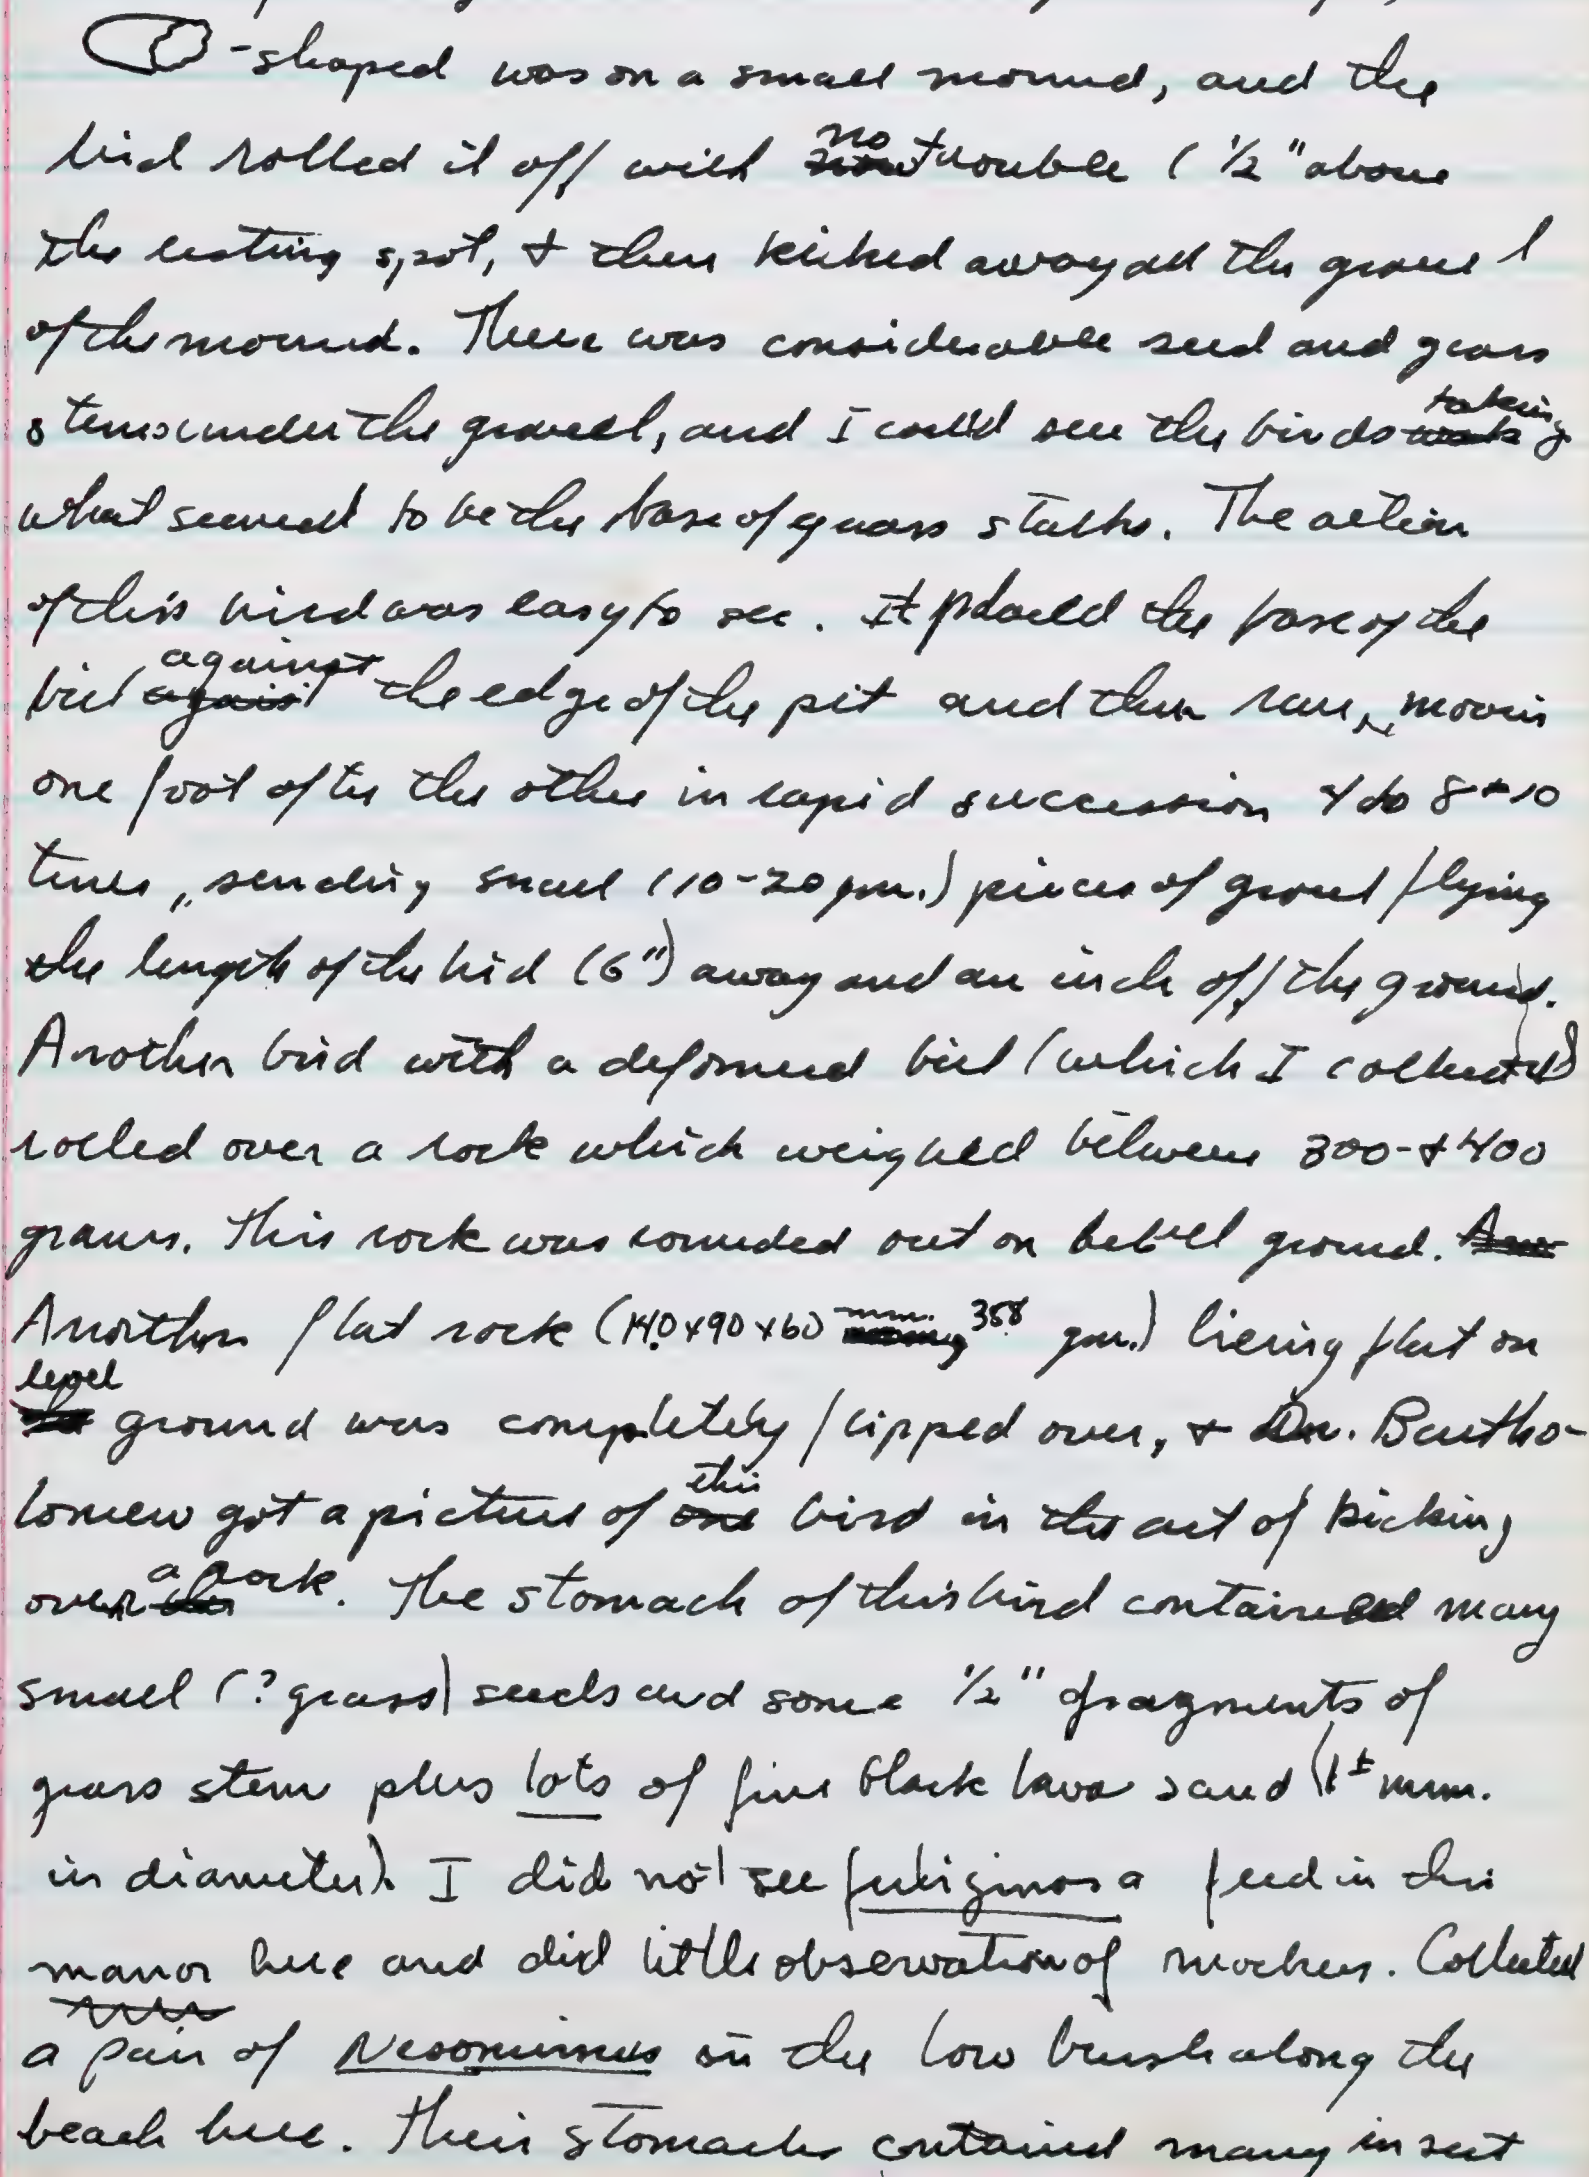 -shaped was on a small mound, and the
bird rolled it off with no trouble (1/2" above
the resting spot, & then kicked away all the gravel
of the mound. There was considerable seed and grass
stems under the gravel, and I could see the birds taking
what seemed to be the base of grass stalks. The action
of this bird was easy to see. It placed the base of the
bill against the edge of the pit and then ran, moving
one foot after the other in rapid succession 4 to 8 + 10
times, sending small (10-20 gm.) pieces of gravel flying
the length of the bird (6") away and an inch off the ground.
Another bird with a deformed bill (which I collected)
rolled over a rock which weighed between 300-&400
grams. This rock was rounded out on level ground.
Another flat rock (140x90x60 mm. 358 gm.) lieing flat on
level ground was completely flipped over, & Dr. Bartho-
lomew got a picture of this bird in the act of kicking
over a rock. The stomach of this bird contained many
small (? grass) seeds and some 1/2" fragments of
grass stem plus lots of fine black lava sand (1± mm.
in diameter). I did not see fuliginosa feed in this
manor here and did little observation of mockers. Collected
a pair of Nesomimus in the low brush along the
beach here. Their stomachs contained many insect